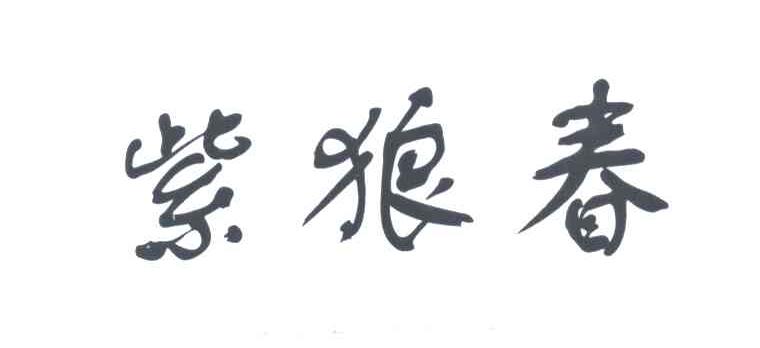 紫狼春